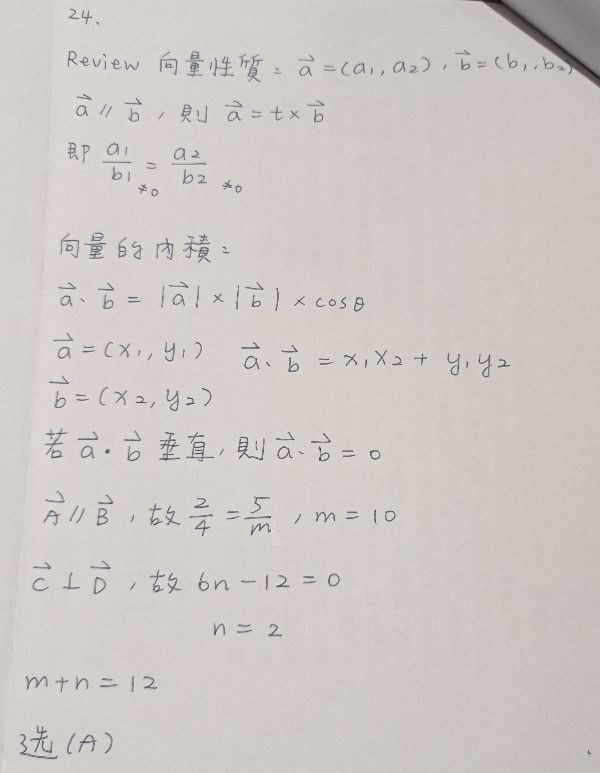 24、
Review 向量性質：a⃗=(a₁,a₂), b⃗=(b₁,b₂)
a⃗ // b⃗ , 則 a⃗ = t × b⃗
即 a₁/b₁ = a₂/b₂
≠0 ≠0
向量的內積：
a⃗、b⃗ = |a⃗| × |b⃗| × cosθ
a⃗ = (x₁, y₁) a⃗、b⃗ = x₁x₂ + y₁y₂
b⃗ = (x₂, y₂)
若 a⃗・b⃗ 垂直, 則 a⃗、b⃗ = 0
A⃗ // B⃗ , 故 2/4 = 5/m , m = 10
C⃗ ⊥ D⃗ , 故 6n - 12 = 0
n = 2
m+n = 12
選 (A)